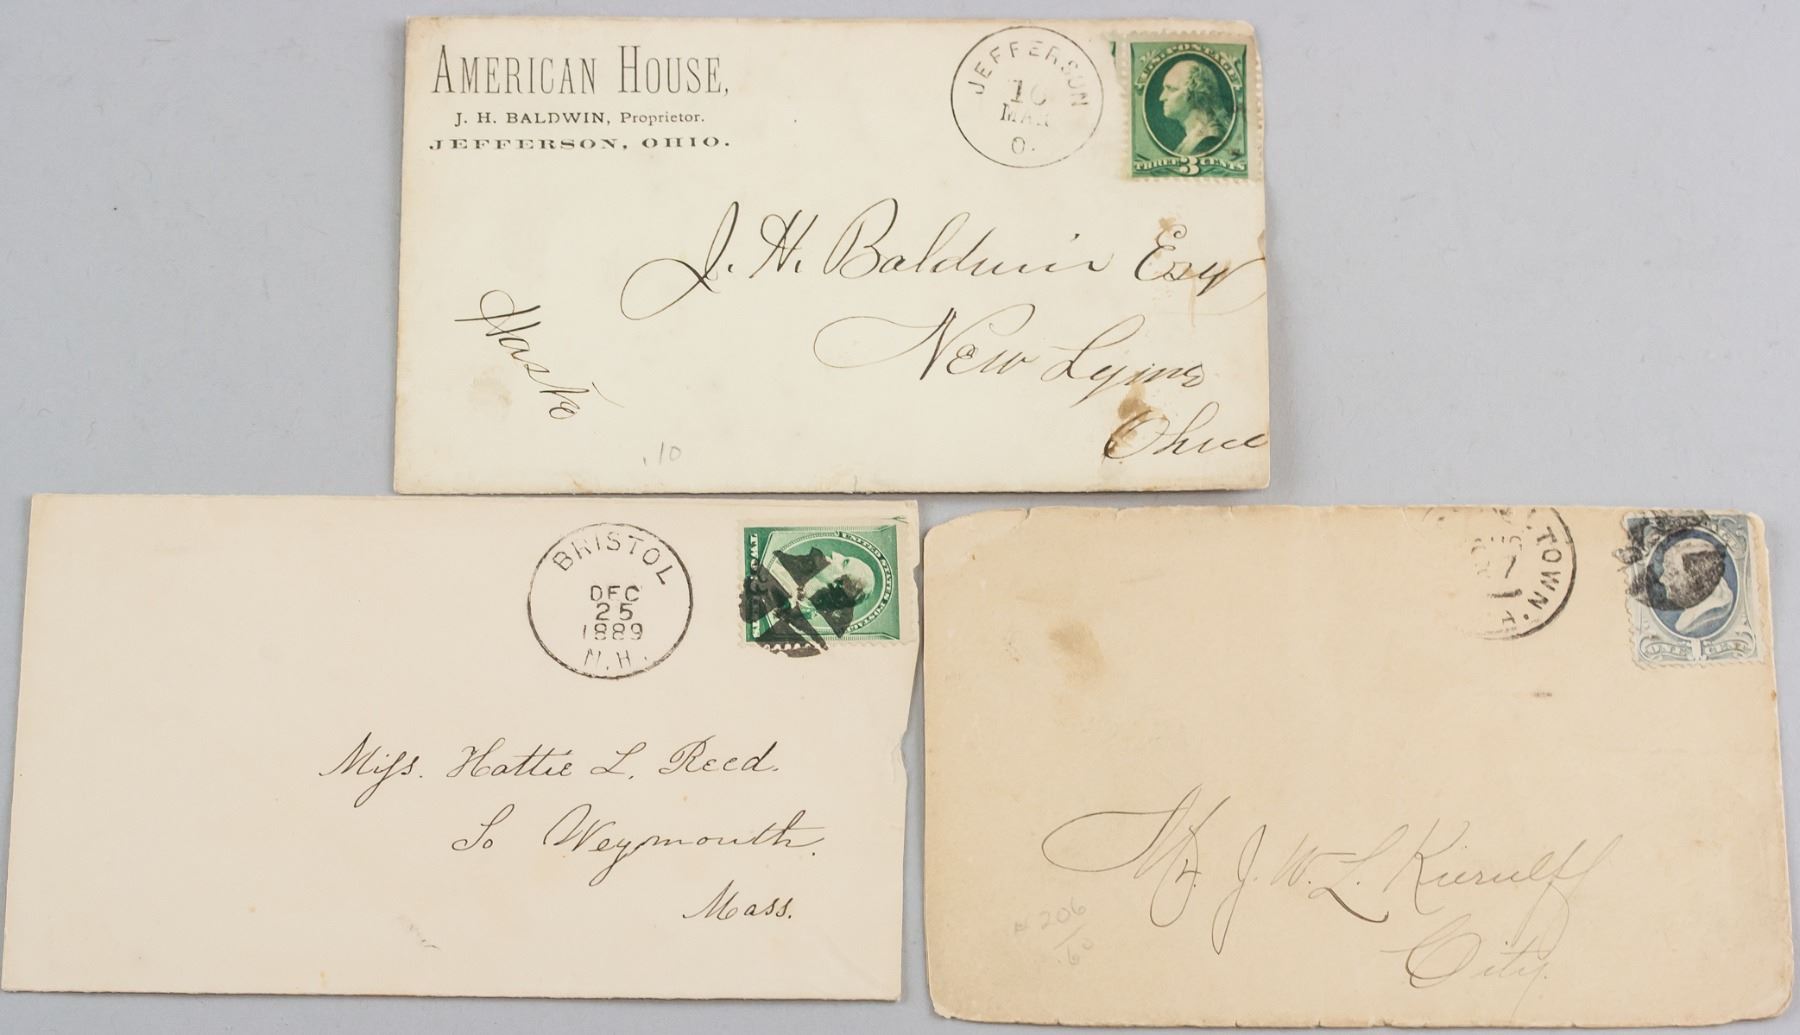 AMERICAN HOUSE,
J. H. BALDWIN, Proprietor.
JEFFERSON, OHIO.
JEFFERSON
MAR
O.
U.S. POSTAGE
THREE 3 CENTS
J. H. Baldwin Esq
New Lyme
Ohio
.10
BRISTOL
DEC
25
1889
N.H.
UNITED STATES POSTAGE
TWO
Miss. Hattie L. Reed.
So Weymouth.
Mass.
TOWN.
7
1
ONE 1 CENT
Mr. J. W. L. Kierulff
City.
# 206
.60